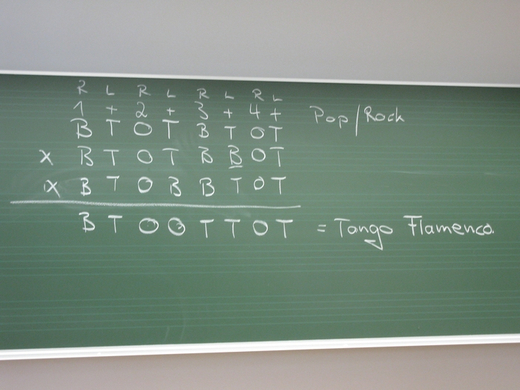 R L R L R L R L
1 + 2 + 3 + 4 + Pop/Rock
B T O T B T O T
x B T O T B B O T
x B T O B B T O T
B T O O T T O T = Tango Flamenco